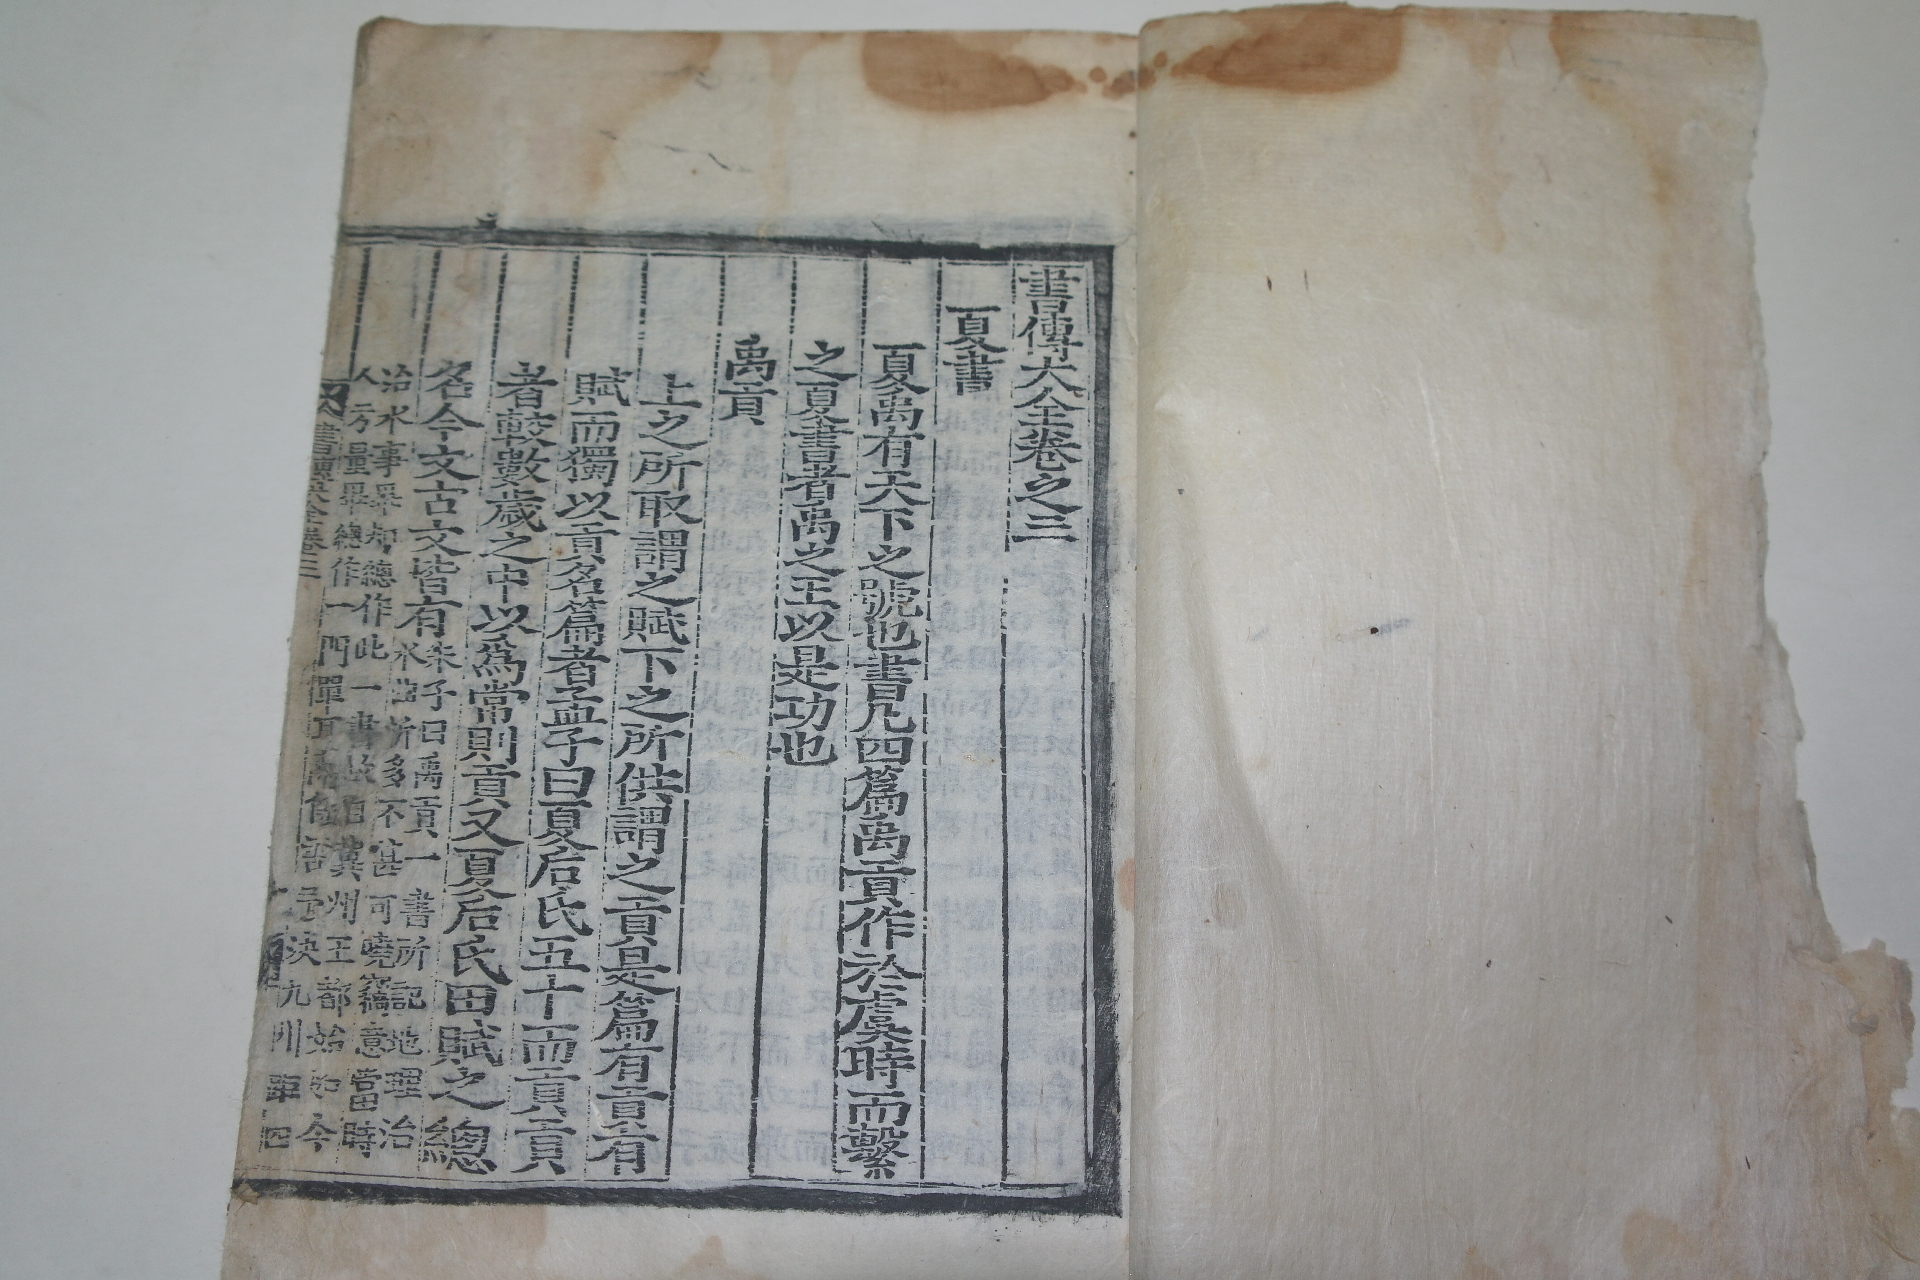 書傳大全卷之三
夏書
夏禹有天下之號也書凡四篇禹貢作於虞時而繫
之夏書者禹之王以是功也
禹貢
上之所取謂之賦下之所供謂之貢是篇有貢有
賦而獨以貢名篇者孟子曰夏后氏五十而貢貢
者較數歲之中以爲常則貢又夏后氏田賦之總
名今文古文皆有朱子曰禹貢一書所記地理治
水曲折多不甚可曉竊意當時
治水事畢却總作此一書故自冀州王都始如今
人方量畢總作一門單耳
書傳大全卷三